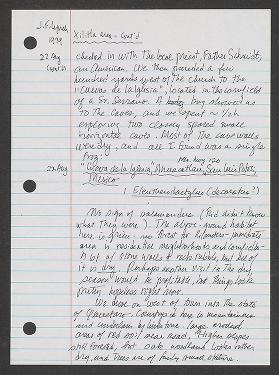 J.F. Lynch
1979
Xilitla area - Cont'd
22 Aug
(cont'd)
checked in with the local priest, Father Schmidt,
an American. We then proceeded a few
hundred yards west of the church to the
"Cuevas de la Iglesia", located in the cornfield
of a Sr. Serrano. A boy showed us
to the caves, and we spent ~ 1½ h
exploring two closely spaced small
horizontal caves. Most of the cave walls
were dry, and all I found was a single
frog.
22 Aug
"Cueva de la Iglesia", Ahuacatlan, San Luis Potosi,
Mexico
1 Eleutherodactylus (decoratus?)
No sign of salamanders (Kid didn't know
what they were). The above-ground habitat
here is grim: no forest or
area is residential neighborhoods and cornfields.
A lot of stone walls & rock rubble, but all of
it is dry. Perhaps another visit in the dry
season would be profitable, but things look
pretty hopeless right now.
We drove on west of town into the state
of Queretaro. Countryside here is mountainous
and underlain by limestone - large eroded
areas of red soil near road. Higher slopes
still forested, but oak woodland looks rather
dry, and trees are of fairly small stature